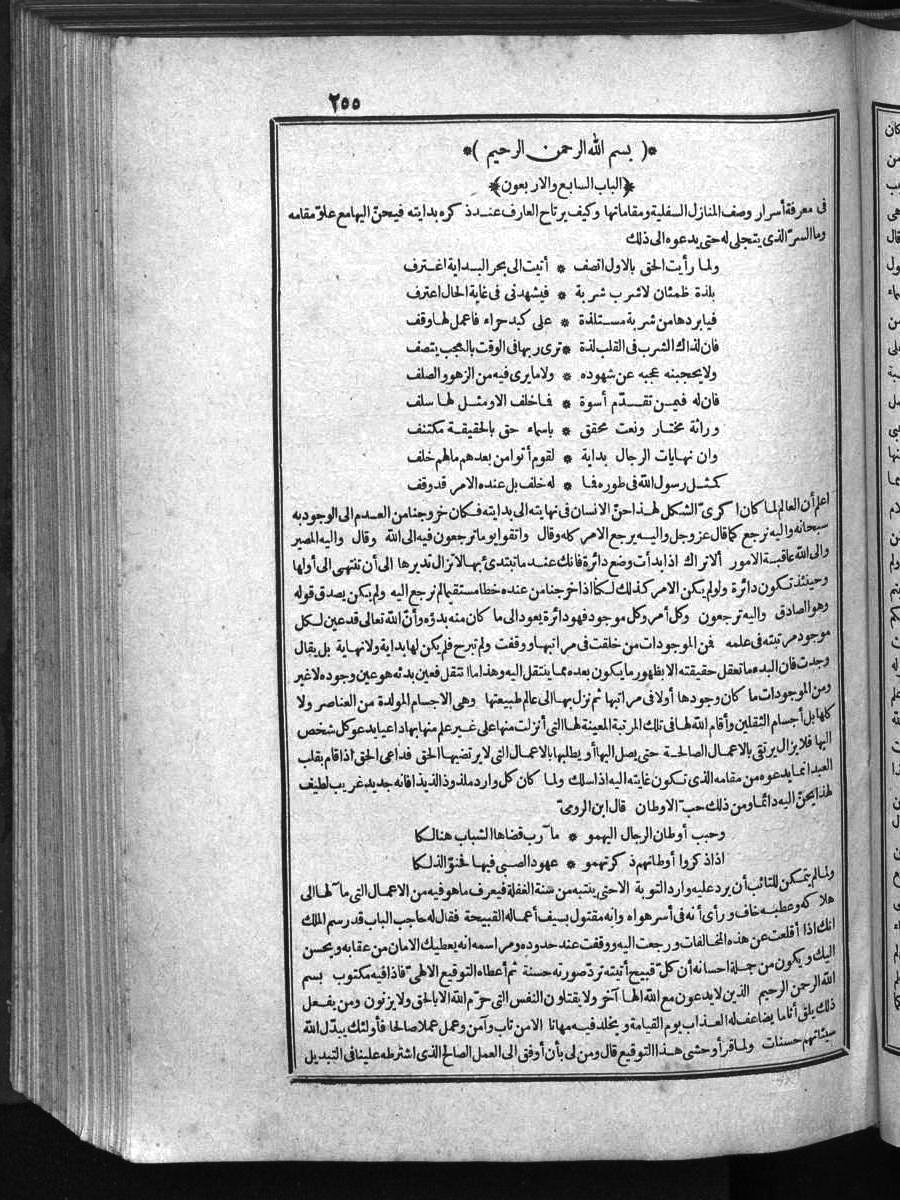 ٢٥٥
*( بسم الله الرحمن الرحيم )*
*(الباب السابع والاربعون)*
فى معرفة أسرار وصف المنازل السفلية ومقاماتها وكيف يرتاح العارف عند ذكره بدايته فيحنّ اليها مع علوّ مقامه
وما السرّ الذى يتجلى له حتى يدعوه الى ذلك
ولما رأيت الحق بالاول اتصف * أتيت الى بحر البداية اغترف
بلذة ظمئان لاشرب شربة * فيشهدنى فى غاية الحال اعترف
فيا بردها من شربة مستلذة * على كبد حراء فاعمل لها وقف
فان لذاك الشرب فى القلب لذة * ترى ربها فى الوقت بالعجب يتصف
ولا يحجبنه عجبه عن شهوده * ولا ما يرى فيه من الزهو والصلف
فان له فيمن تقدّم أسوة * فما خلف الا ومثل لها سلف
وراثة مختار ونعت محقق * باسماء حق بالحقيقة مكتنف
وان نهايات الرجال بداية * لقوم أتوا من بعدهم مالهم خلف
كمثل رسول الله فى طوره فما * له خلف بل عنده الامر قد وقف
اعلم أن العالم لما كان اكرىّ الشكل لهذا حنّ الانسان فى نهايته الى بدايته فكان خروجنا من العدم الى الوجود به
سبحانه واليه نرجع كما قال عز وجل واليه يرجع الامر كله وقال واتقوا يوما ترجعون فيه الى الله وقال واليه المصير
والى الله عاقبة الامور ألا تراك اذا بدأت وضع دائرة فانك عند ما تبتدئ بها لا تزال تديرها الى أن تنتهى الى أولها
وحينئذ تكون دائرة ولو لم يكن الامر كذلك لكنا اذا خرجنا من عنده خطا مستقيما لم نرجع اليه ولم يكن يصدق قوله
وهو الصادق واليه ترجعون وكل أمر وكل موجود فهو دائرة يعود الى ما كان منه بدؤه وأنّ الله تعالى قد عين لكل
موجود مرتبته فى علمه فمن الموجودات من خلقت فى مراتبها ووقفت ولم تبرح فلم يكن لها بداية ولا نهاية بل يقال
وجدت فان البدء ما تعقل حقيقته الا بظهور ما يكون بعده مما ينتقل اليه وهذا ما انتقل فعين بدئه هو عين وجوده لا غير
ومن الموجودات ما كان وجودها أولا فى مراتبها ثم نزل بها الى عالم طبيعتها وهى الاجسام المولدة من العناصر ولا
كلها بل أجسام الثقلين وأقام الله لها فى تلك المرتبة المعينة لها التى أنزلت منها على غير علم منها بها داعيا يدعو كل شخص
اليها فلا يزال يرتقى بالاعمال الصالحة حتى يصل اليها أو يطلبها بالاعمال التى لا يرتضيها الحق فداعى الحق اذا قام بقلب
العبد انما يدعوه من مقامه الذى تكون غايته اليه اذا سلك ولما كان كل وارد ملذوذا لذيذا فانه جديد غريب لطيف
لهذا يحنّ اليه دائما ومن ذلك حبّ الاوطان قال ابن الرومىّ
وحبب أوطان الرجال اليهمو * مآرب قضاها الشباب هنالكا
اذا ذكروا أوطانهم ذكرتهمو * عهود الصبى فيها فحنوّا لذلكا
ولما لم يتمكن للتائب أن يرد عليه وارد التوبة الا حتى ينتبه من سنة الغفلة فيعرف ما هو فيه من الاعمال التى مآلها الى
هلاكه وعطبه خاف ورأى أنه فى أسر هواه وانه مقتول بسيف أعماله القبيحة فقال له حاجب الباب قد رسم الملك
انك اذا أقلعت عن هذه المخالفات ورجعت اليه ووقفت عند حدوده ومراسمه انه يعطيك الامان من عقابه ويحسن
اليك ويكون من جملة احسانه أن كلّ قبيح أتيته تردّ صورته حسنة ثم أعطاه التوقيع الالهىّ فاذا فيه مكتوب بسم
الله الرحمن الرحيم الذين لا يدعون مع الله الها آخر ولا يقتلون النفس التى حرّم الله الا بالحق ولا يزنون ومن يفعل
ذلك يلق أثاما يضاعف له العذاب يوم القيامة ويخلد فيه مهانا الا من تاب وآمن وعمل عملا صالحا فأولئك يبدّل الله
سيئاتهم حسنات ولما قرأ وحشى هذا التوقيع قال ومن لى بأن أوفق الى العمل الصالح الذى اشترطه علينا فى التبديل